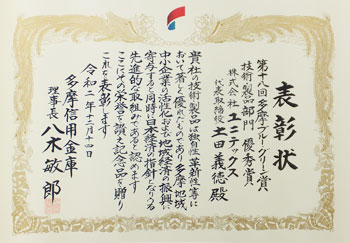 表彰状
第十八回 多摩ブルー・グリーン賞
技術・製品部門 優秀賞
株式会社 ユニテックス
代表取締役 土田義徳 殿
貴社の技術・製品は独自性・革新性等に
おいて著しく優れたものであり多摩地域、
中小企業の活性化および地域経済の振興に
寄与すると同時に日本経済の指針となりうる
先進的な取組みであると認めます
ここにその栄誉を讃え記念品を贈り
これを表彰します
令和二年十二月十四日
多摩信用金庫
理事長 八木敏郎